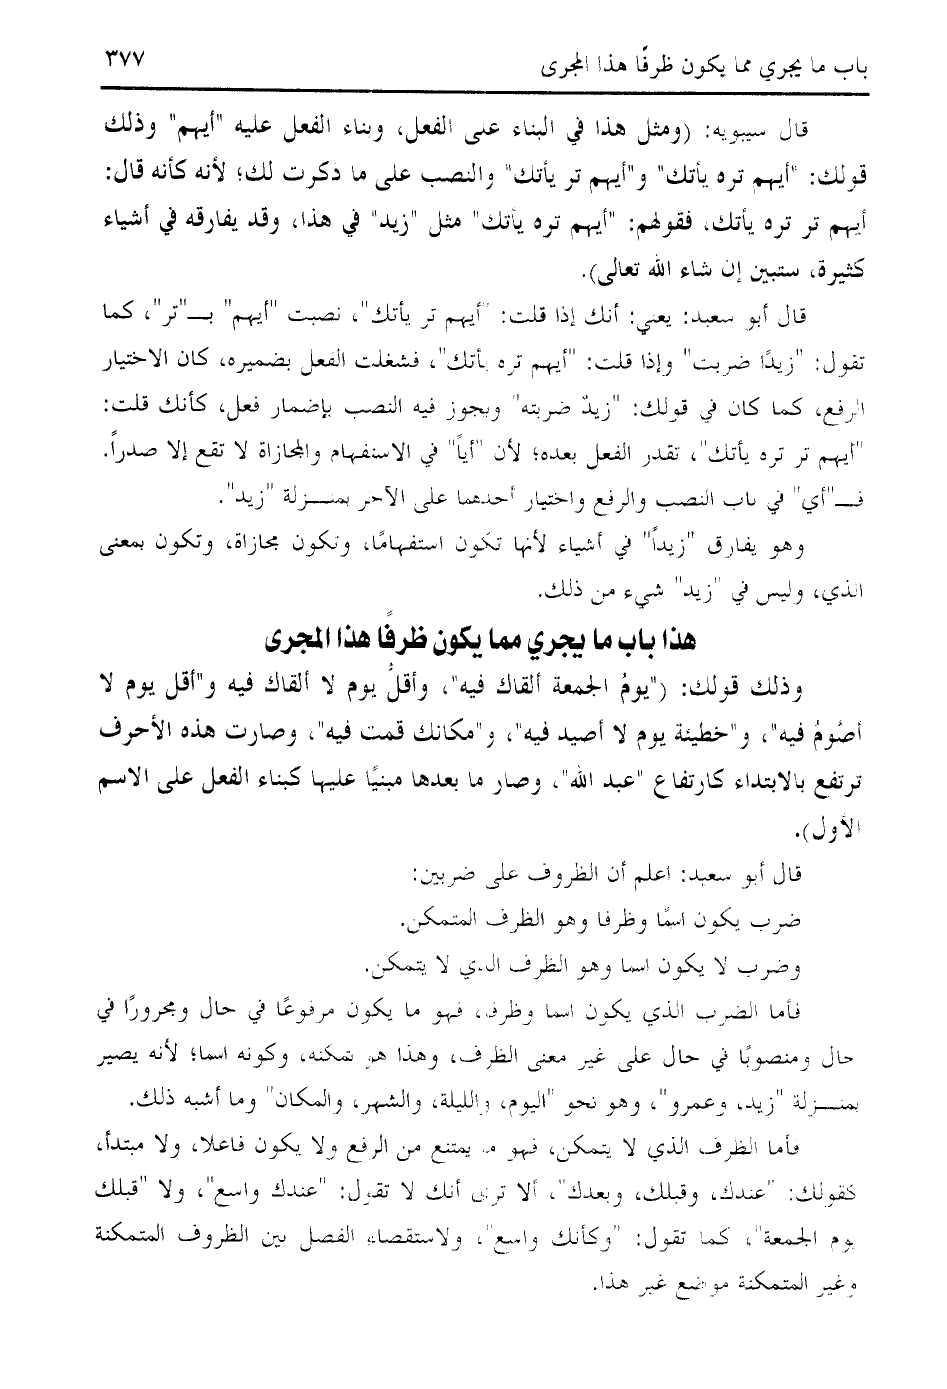 باب ما يجري مما يكون ظرفًا هذا المجرى ٣٧٧
قال سيبويه: (ومثل هذا في البناء على الفعل، وبناء الفعل عليه "أيهم" وذلك
قولك: "أيهم تره يأتك" و"أيهم تر يأتك" والنصب على ما ذكرت لك؛ لأنه كأنه قال:
أيهم تر تره يأتك، فقولهم: "أيهم تره يأتك" مثل "زيد" في هذا، وقد يفارقه في أشياء
كثيرة، ستبين إن شاء الله تعالى).
قال أبو سعيد: يعني: أنك إذا قلت: "أيهم تر يأتك"، نصبت "أيهم" بـــ"تر"، كما
تقول: "زيدًا ضربت" وإذا قلت: "أيهم تره يأتك"، فشغلت الفعل بضميره، كان الاختيار
الرفع، كما كان في قولك: "زيدٌ ضربته" ويجوز فيه النصب بإضمار فعل، كأنك قلت:
"أيهم تر تره يأتك"، تقدر الفعل بعده؛ لأن "أياً" في الاستفهام والمجازاة لا تقع إلا صدراً.
فـــ"أي" في باب النصب والرفع واختيار أحدهما على الآخر بمنــزلة "زيد".
وهو يفارق "زيداً" في أشياء لأنها تكون استفهامًا، وتكون مجازاة، وتكون بمعنى
الذي، وليس في "زيد" شيء من ذلك.
هذا باب ما يجري مما يكون ظرفًا هذا المجرى
وذلك قولك: ("يومُ الجمعة ألقاك فيه"، وأقلُّ يوم لا ألقاك فيه و"أقل يوم لا
أصُومُ فيه"، و"خطيئة يوم لا أصيد فيه"، و"مكانك قمت فيه"، وصارت هذه الأحرف
ترتفع بالابتداء كارتفاع "عبد الله"، وصار ما بعدها مبنيًا عليها كبناء الفعل على الاسم
الأول).
قال أبو سعيد: اعلم أن الظروف على ضربين:
ضرب يكون اسمًا وظرفا وهو الظرف المتمكن.
وضرب لا يكون اسما وهو الظرف الذي لا يتمكن.
فأما الضرب الذي يكون اسما وظرفا، فهو ما يكون مرفوعًا في حال ومجرورًا في
حال ومنصوبًا في حال على غير معنى الظرف، وهذا هو تمكنه، وكونه اسما؛ لأنه يصير
بمنــزلة "زيد، وعمرو"، وهو نحو "اليوم، والليلة، والشهر، والمكان" وما أشبه ذلك.
فأما الظرف الذي لا يتمكن، فهو ما يمتنع من الرفع ولا يكون فاعلا، ولا مبتدأ،
كقولك: "عندك، وقبلك، وبعدك"، ألا ترى أنك لا تقول: "عندك واسع"، ولا "قبلك
يوم الجمعة"، كما تقول: "وكأنك واسع"، ولاستقصاء الفصل بين الظروف المتمكنة
وغير المتمكنة موضع غير هذا.